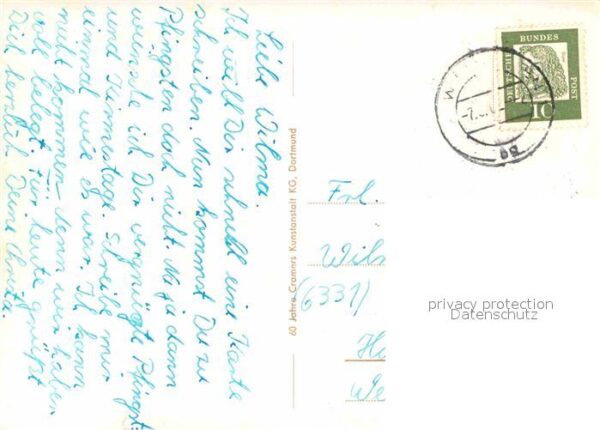 Liebe Wilma.
Ich will Dir schnell eine Karte
schreiben. Nun kommst Du zu
Pfingsten doch nicht. Na ja dann
wünsche ich Dir vergnügte Pfingst-
und Kirmestage. Schreibe mir
einmal wie es war. Ich kann
nicht kommen denn wir haben
voll belegt. Für heute grüßt
Dich herzlich Deine Christa.
60 Jahre Cramers Kunstanstalt KG, Dortmund
DEUTSCHE
BUNDES
POST
10
Frl.
Wil
(6331)
Ho
We
privacy protection
Datenschutz